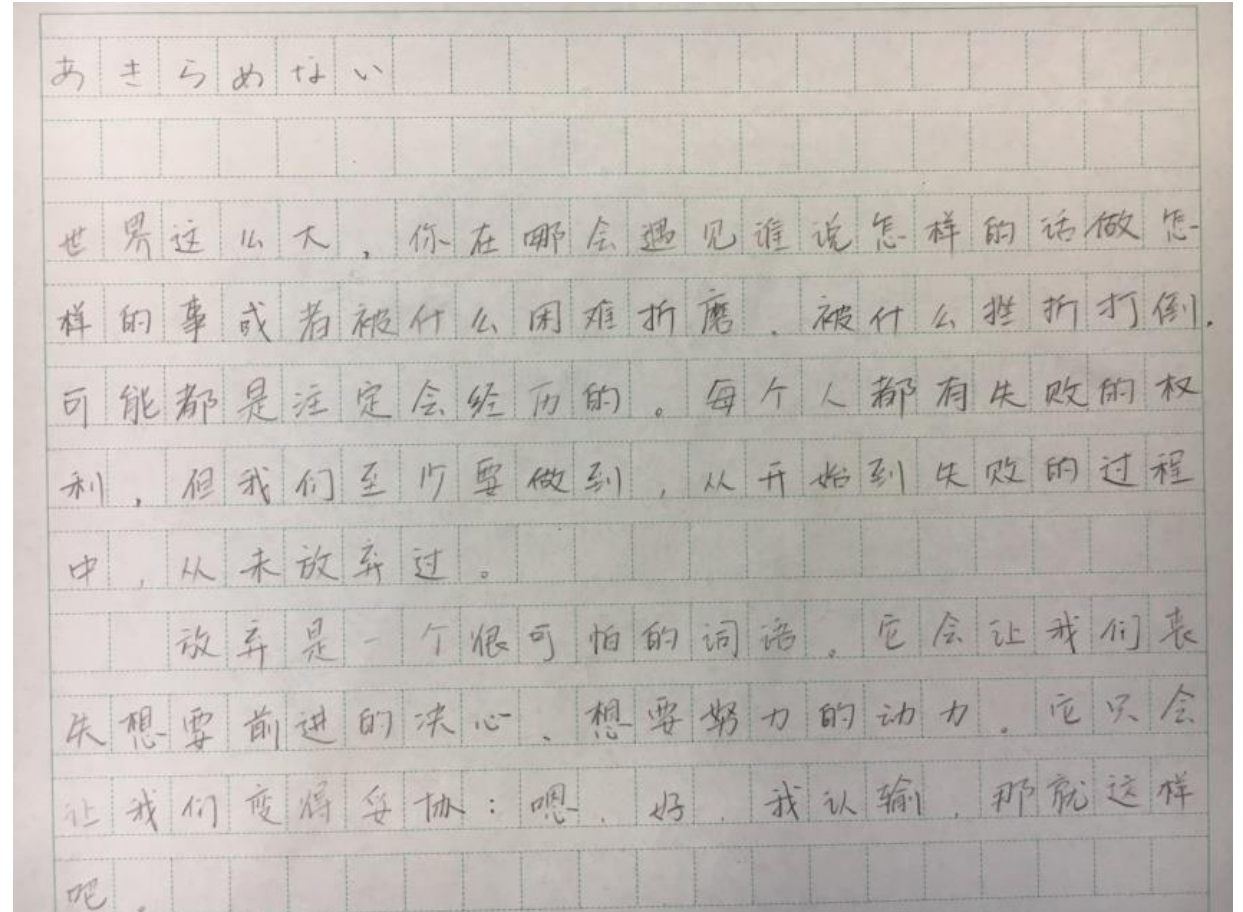 あきらめない
世界这么大，你在哪会遇见谁说怎样的话做怎
样的事或者被什么困难折磨，被什么挫折打倒，
可能都是注定会经历的。每个人都有失败的权
利，但我们至少要做到，从开始到失败的过程
中，从未放弃过。
放弃是一个很可怕的词语。它会让我们丧
失想要前进的决心、想要努力的动力。它只会
让我们变得妥协：嗯，好，我认输，那就这样
吧。